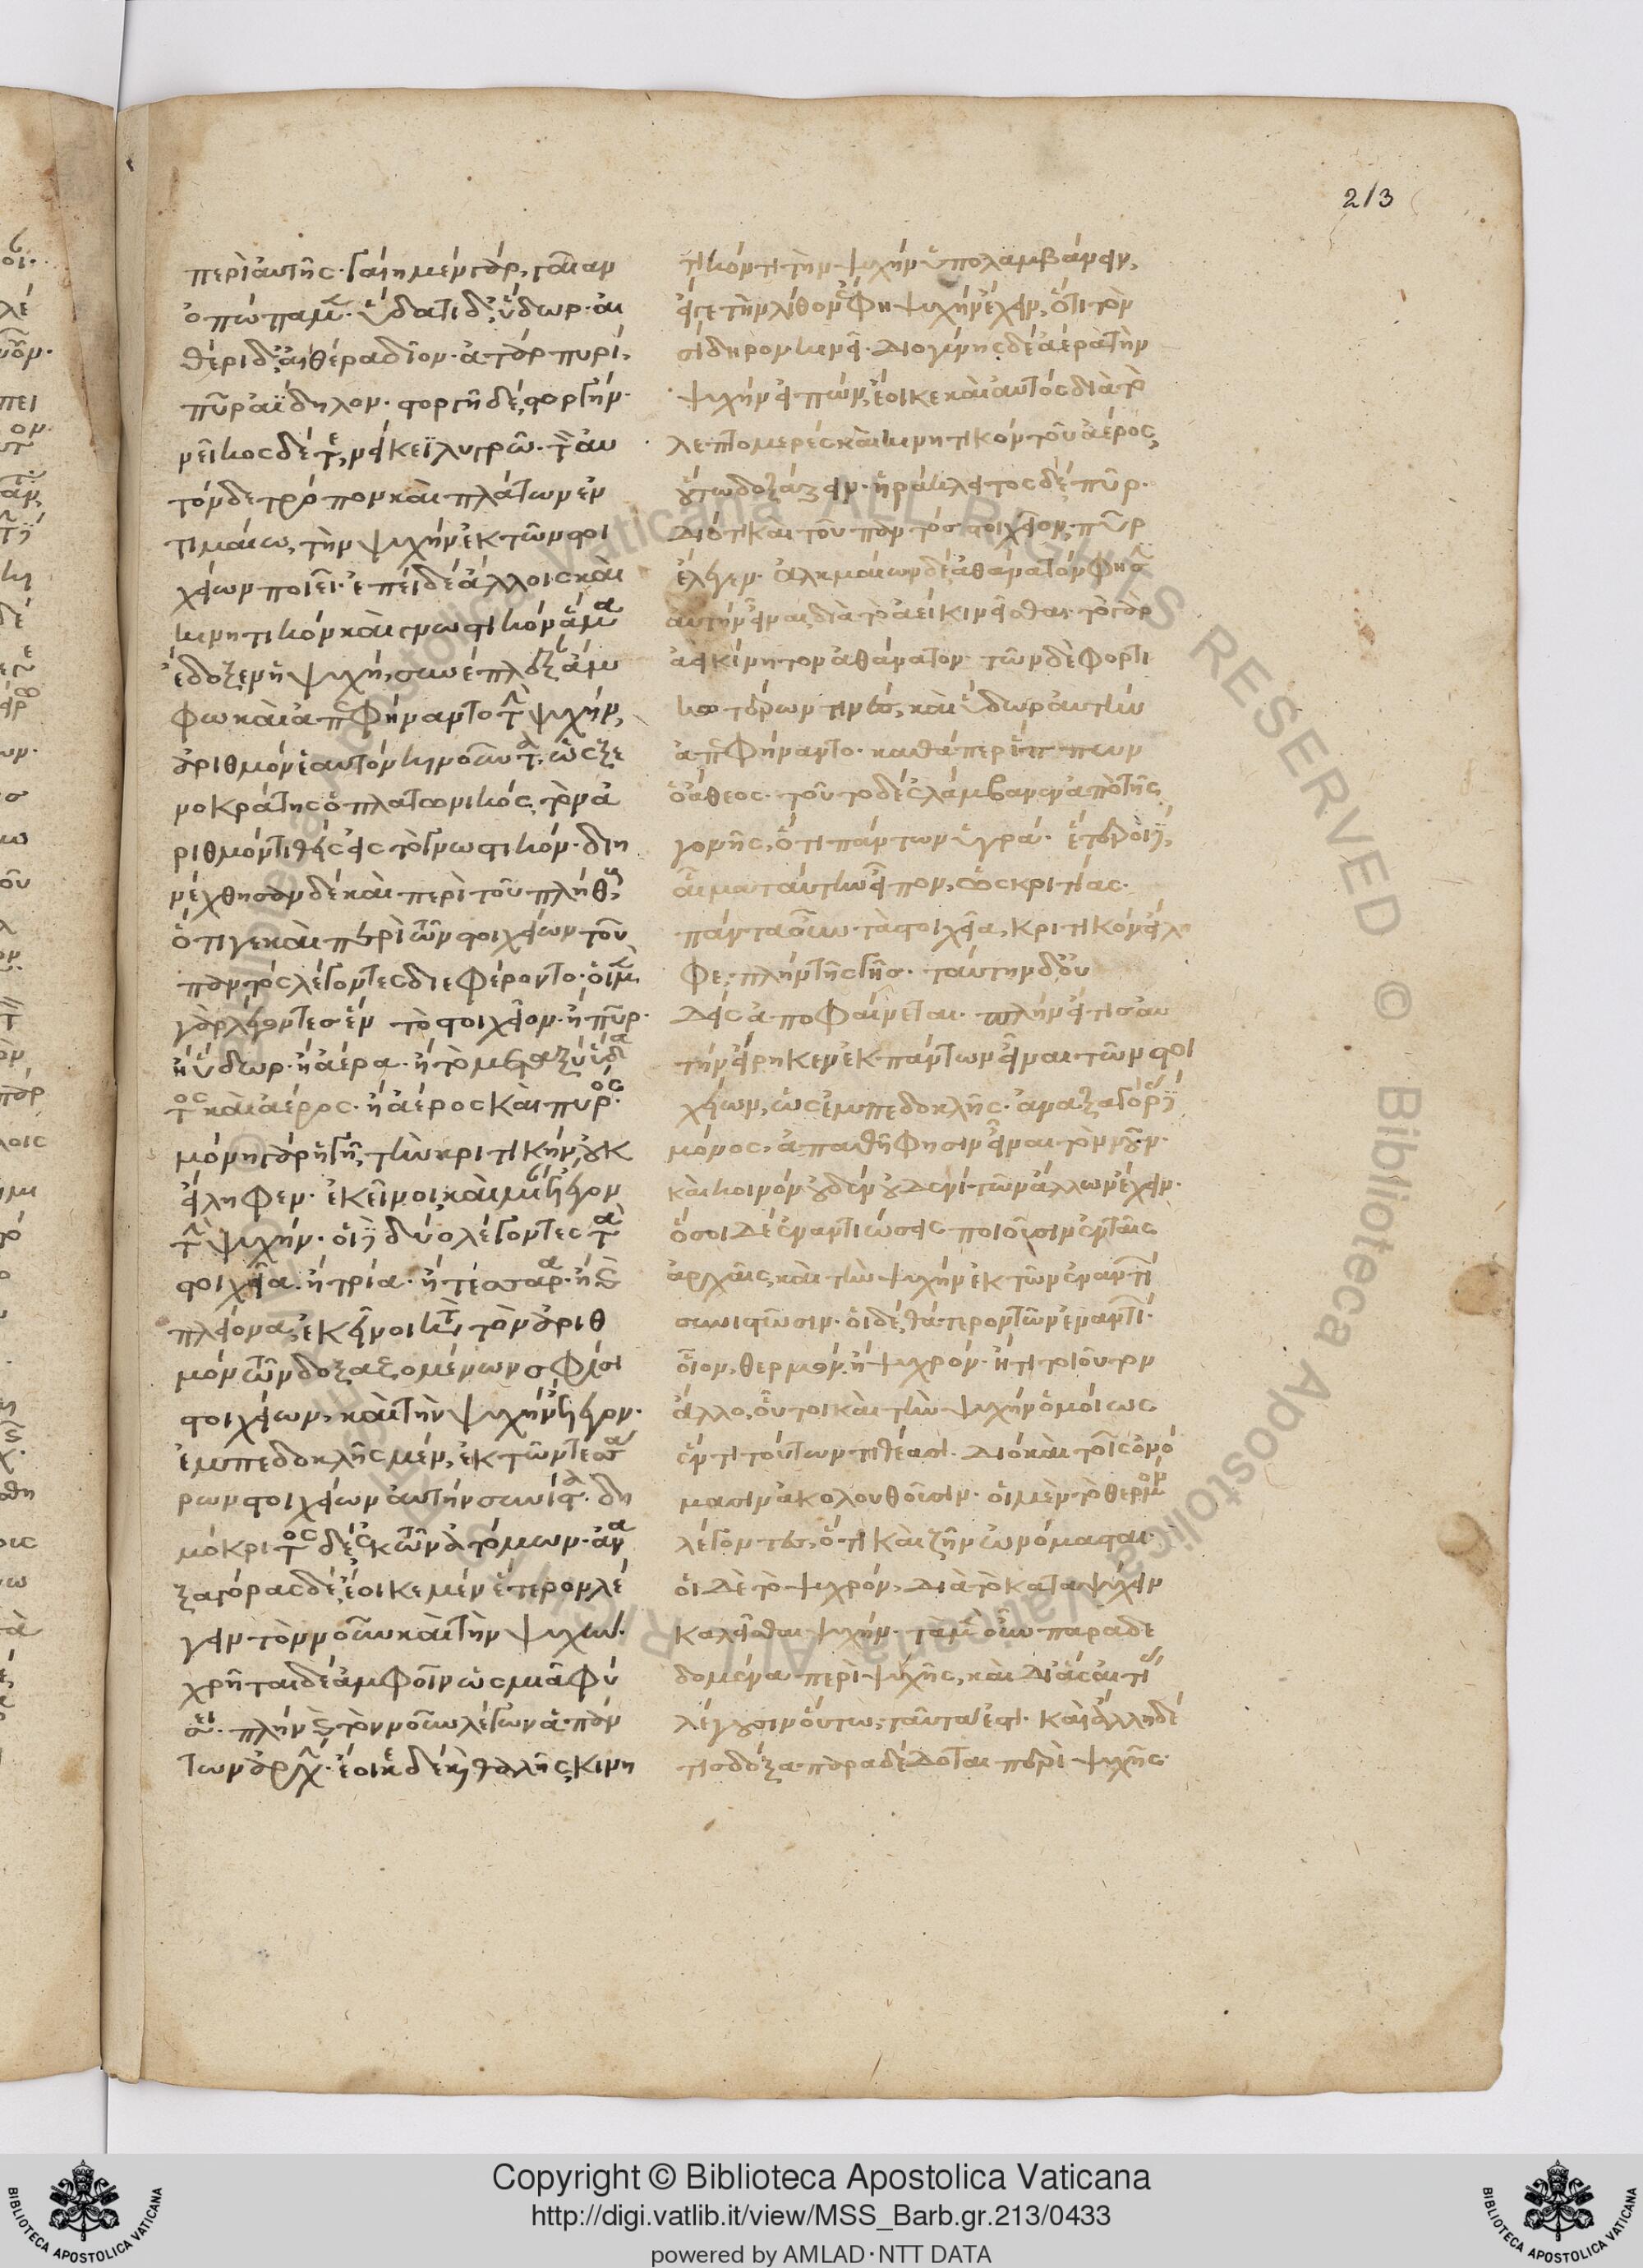 213
περὶ αὐτῆς· γαίη μὲν γὰρ, γαῖαν
ὀπώπαμεν· ὕδατι δ' ὕδωρ· αἰ
θέρι δ' αἰθέρα δῖον· ἀτὰρ πυρὶ,
πῦρ ἀΐδηλον· στοργῇ δὲ, στοργήν·
νεῖκος δέ τε, νείκεϊ λυγρῶ· τὸν αὐ
τὸν δὲ τρόπον καὶ πλάτων ἐν
τιμαίω, τὴν ψυχὴν ἐκ τῶν στοι
χείων ποιεῖ· ἐπεὶ δὲ ἄλλοις καὶ
κινητικὸν καὶ γνωστικὸν ἅμα
ἔδοξεν ἡ ψυχὴ, συνέπλεξαν
ἄμφω καὶ ἀπεφήναντο τὴν ψυχὴν,
ἀριθμὸν ἑαυτὸν κινοῦντα, ὡς ξε
νοκράτης ὁ πλατωνικός, τὸν ἀ
ριθμὸν τιθεὶς εἰς τὸ γνωστικόν· διη
νέχθησαν δὲ καὶ περὶ τοῦ πλήθους,
ὅτι γε καὶ περὶ ὧν στοιχείων τοῦ
παντὸς λέγοντες διεφέροντο· οἱ μὲν
γὰρ λέγοντες ἓν τὸ στοιχεῖον· ἢ πῦρ·
ἢ ὕδωρ· ἢ ἀέρα· ἢ τὸ μεταξὺ ὕδα
τος καὶ ἀέρος· ἢ ἀέρος καὶ πυρός·
μόνη γὰρ ἡ γῆ, τὴν κριτικὴν οὐκ
εἴληφεν· ἐκεῖνοι καὶ μίαν ἔλεγον
τὴν ψυχήν· οἱ δὲ δύο λέγοντες τὰ
στοιχεῖα· ἢ τρία· ἢ τέσσαρα· ἢ καὶ
πλείονα, ἐκεῖνοι κατὰ τὸν ἀριθ
μὸν τῶν δοξαζομένων σφίσι
στοιχείων, καὶ τὴν ψυχὴν ἔλεγον·
ἐμπεδοκλῆς μὲν, ἐκ τῶν τεσσά
ρων στοιχείων αὐτὴν συνιστᾶ· δη
μόκριτος δὲ, ἐκ τῶν ἀτόμων· ἀνα
ξαγόρας δὲ, ἔοικε μὲν ἕτερον λέ
γειν τὸν νοῦν καὶ τὴν ψυχήν·
χρῆται δὲ ἀμφοῖν ὡς μιᾶ φύ
σει· πλὴν τὸν νοῦν λέγων ἁπάν
των ἀρχήν· ἔοικε δὲ καὶ θαλῆς κινη
τικόν τι τὴν ψυχὴν ὑπολαμβάνειν,
εἴγε τὴν λίθον ἔφη ψυχὴν ἔχειν, ὅτι τὸν
σίδηρον κινεῖ· διογένης δὲ ἀέρα τὴν
ψυχὴν εἰπὼν, ἔοικε καὶ αὐτὸς διὰ τὸ
λεπτομερὲς καὶ κινητικὸν τοῦ ἀέρος,
οὕτω δοξάζειν· ἡράκλειτος δὲ πῦρ·
διότι καὶ τοῦ παντὸς στοιχεῖον, πῦρ
ἔλεγεν· ἀλκμαίων δὲ, ἀθάνατόν φησιν
αὐτὴν εἶναι, διὰ τὸ ἀεὶ κινεῖσθαι· τὸ γὰρ
ἀεικίνητον ἀθάνατον· τῶν δὲ φορτι
κωτέρων τινὲς, καὶ ὕδωρ αὐτὴν
ἀπεφήναντο· καθάπερ ἵππων
ὁ ἄθεος· τοῦτο δὲ, ἐλάμβανεν ἀπὸ τῆς
γονῆς, ὅτι πάντων ὑγρά· ἕτεροι δὲ,
αἷμα ταύτην εἶπον, ὡς κριτίας·
πάντα οὖν τὰ στοιχεῖα, κριτικὸν εἴλη
φε, πλὴν τῆς γῆς· ταύτην δ' οὐ
δεὶς ἀποφαίνεται· πλὴν εἴ τις αὐ
τὴν εἴρηκεν ἐκ πάντων εἶναι τῶν στοι
χείων, ὡς ἐμπεδοκλῆς· ἀναξαγόρας δὲ
μόνος, ἀπαθῆ φησιν εἶναι τὸν νοῦν·
καὶ κοινὸν οὐδὲν οὐδενὶ τῶν ἄλλων ἔχειν·
ὅσοι δὲ ἐναντιώσεις ποιοῦσιν ἐν ταῖς
ἀρχαῖς, καὶ τὴν ψυχὴν ἐκ τῶν ἐναντί
συνιστῶσιν· οἱ δὲ, θάτερον τῶν ἐναντί·
οἷον, θερμὸν, ἢ ψυχρόν· ἤ τι τοιοῦτον
ἄλλο, οὗτοι καὶ τὴν ψυχὴν ὁμοίως
ἕν τι τούτων τιθέασι· διὸ καὶ τοῖς ὀνό
μασιν ἀκολουθοῦσιν· οἱ μὲν τὸ θερμὸν
λέγοντες, ὅτι καὶ ζῆν ὠνόμασται·
οἱ δὲ τὸ ψυχρόν, διὰ τὸ καταψύχειν
καλεῖσθαι ψυχήν· τὰ μὲν οὖν παραδε
δομένα περὶ ψυχῆς, καὶ δι' ἃς αἰτίας
λέγουσιν οὕτω, ταῦτ' ἐστί· καὶ ἄλλη δέ
τις δόξα παραδέδοται περὶ ψυχῆς·
Copyright © Biblioteca Apostolica Vaticana
http://digi.vatlib.it/view/MSS_Barb.gr.213/0433
powered by AMLAD·NTT DATA